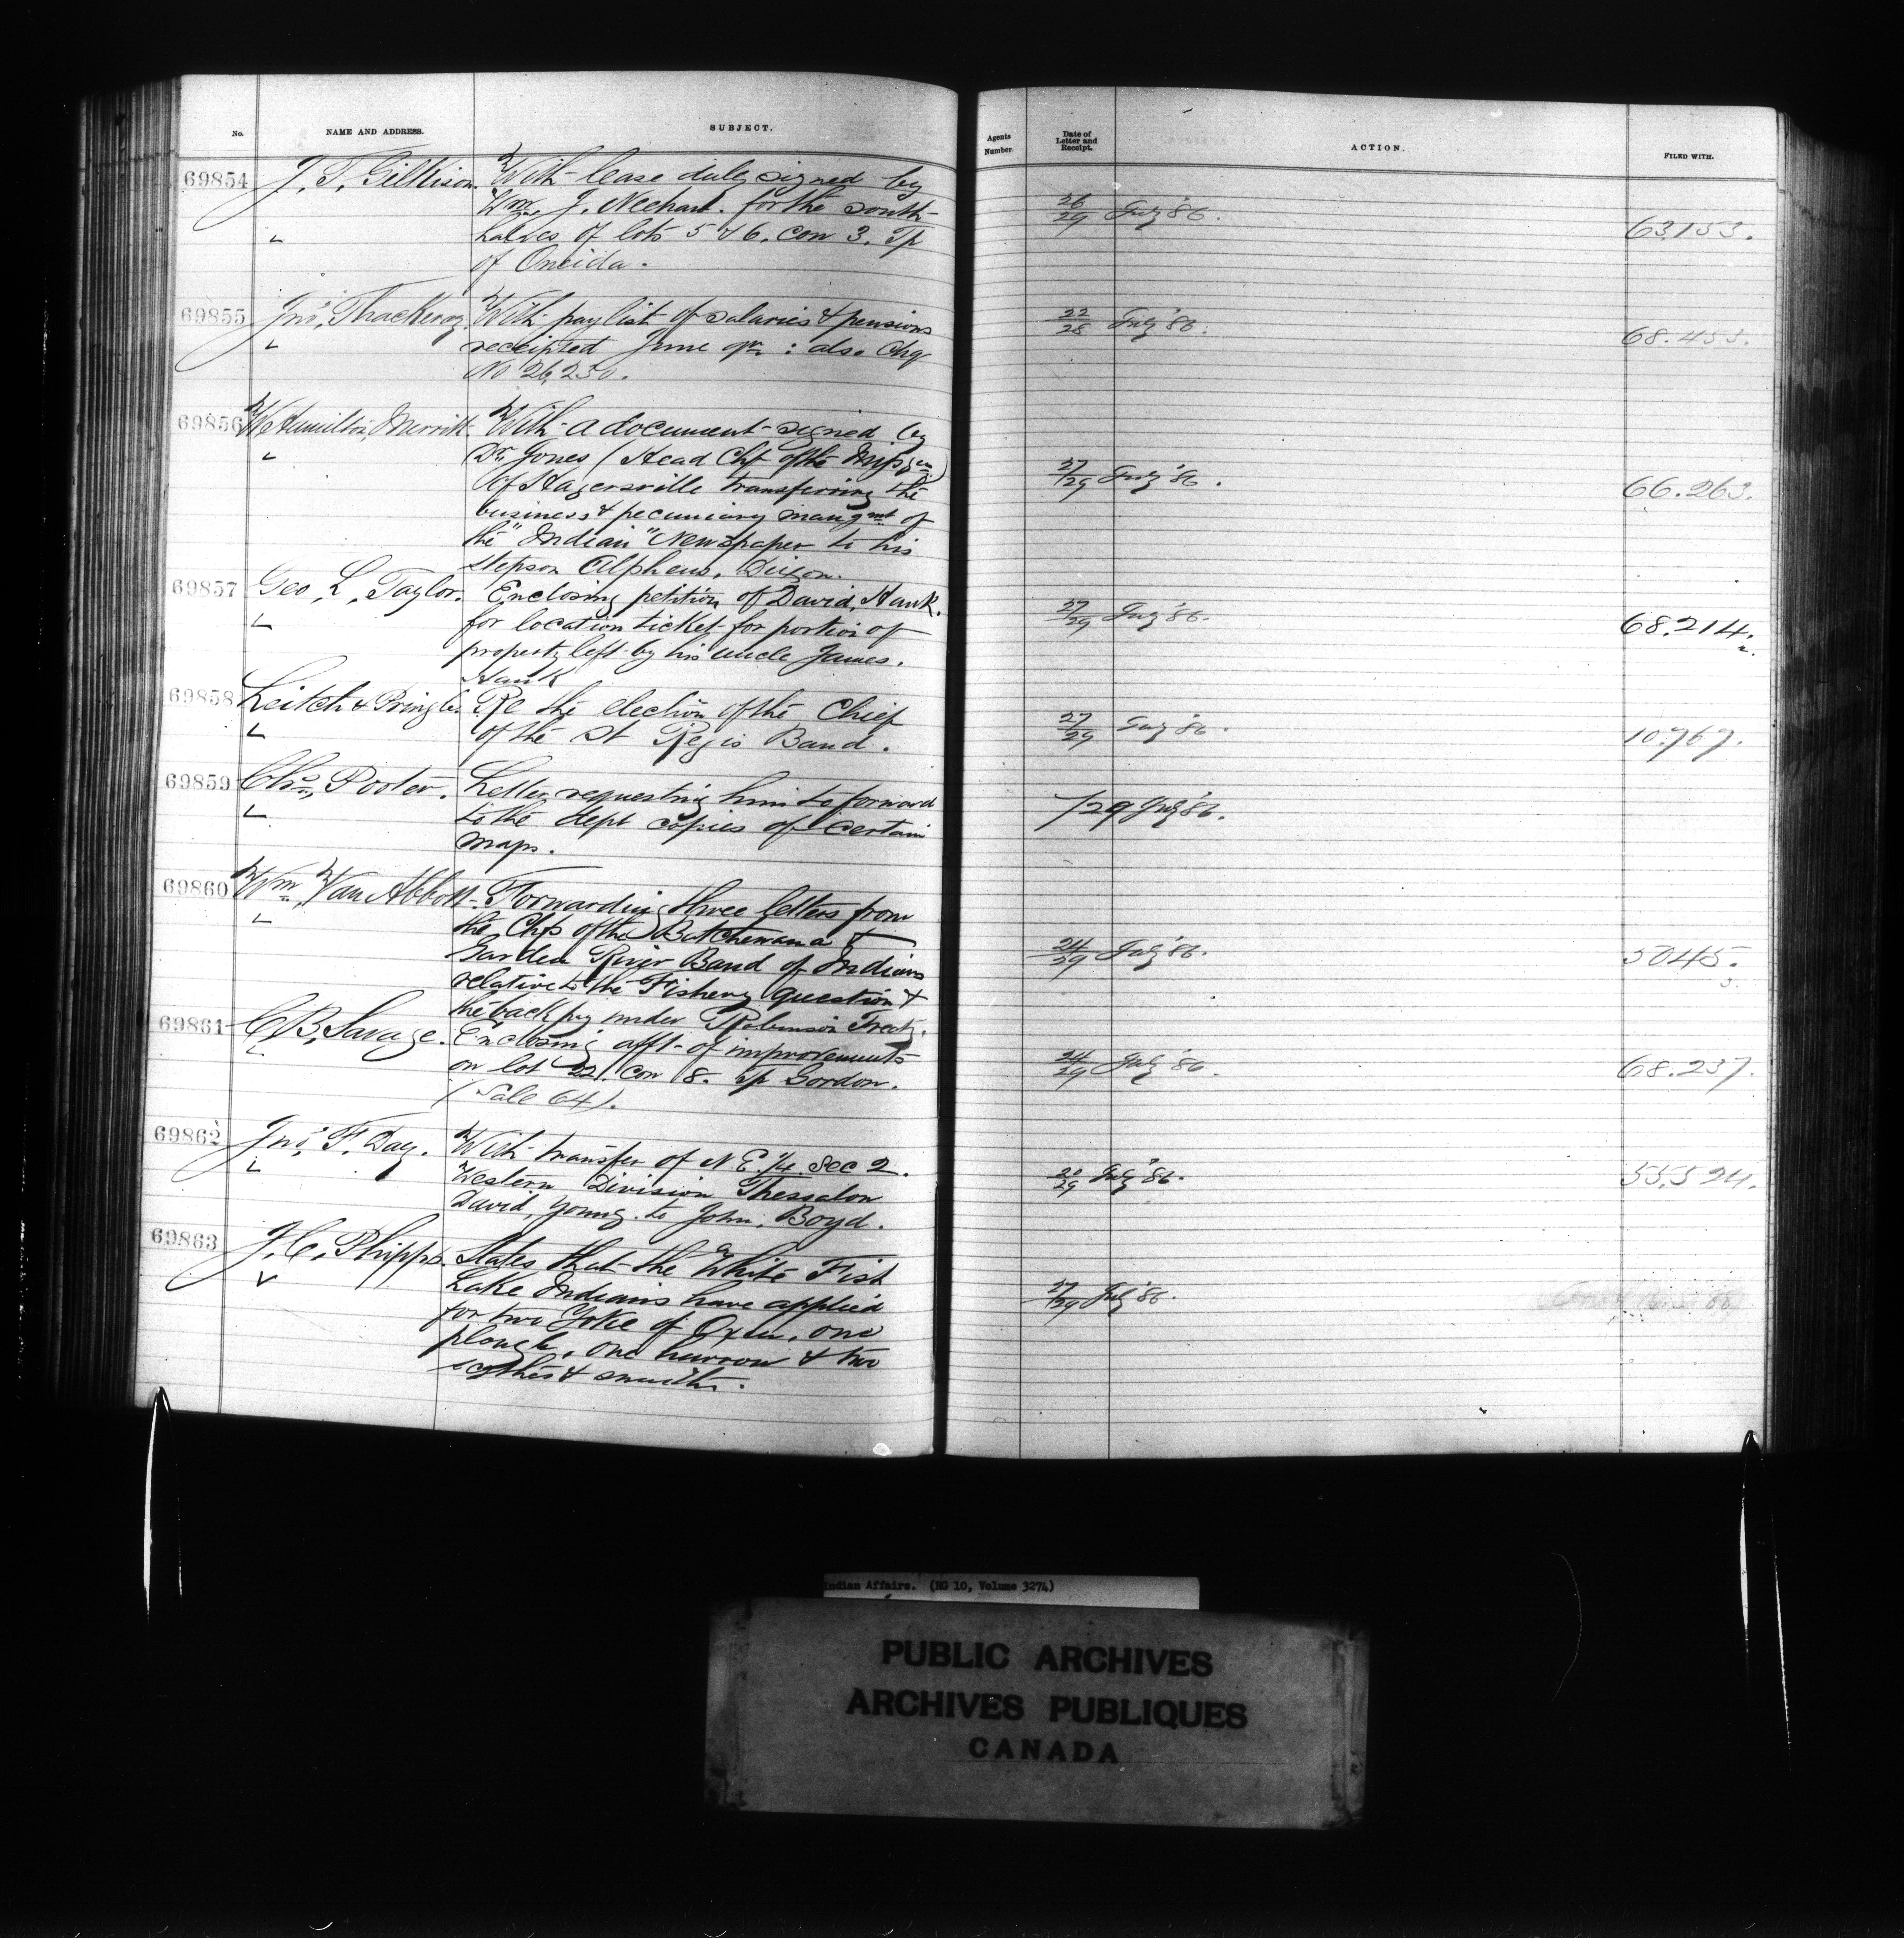 No. NAME AND ADDRESS. SUBJECT. Agents Number. Date of Letter and Receipt. ACTION. FILED WITH.
69854 J. T. Gilkison. With lease duly signed by
Wm. J. Nechart. for the south
halves of lots 5 & 6. Con 3. Tp
of Oneida.
26/29 July '86. 63,153.
69855 Jno. Thackeray. With pay list of salaries & pensions
receipted June qr : also Chq
No 26,230.
22/28 July '86. 68.453.
69856 W. Hamilton Merritt. With a document signed by
Dr. Jones (Head Chf of the Miss)
of Hagersville transferring the
business & pecuniary mangmt of
the "Indian" Newspaper to his
stepson Alpheus. Dixon.
27/29 July '86. 66.263.
69857 Geo. L. Taylor. Enclosing petition of David, Hank.
for location ticket for portion of
property left by his uncle James.
Hank
27/29 July '86. 68.214.
69858 Leitch & Pringle. Re the election of the Chief
of the St Regis Band.
27/29 July '86. 10.767.
69859 Chs. Porter. Letter requesting him to forward
to the dept copies of certain
maps.
/29 July '86.
69860 Wm. Van Abbott. Forwarding three letters from
the Chfs of the Batchewana &
Garden River Band of Indians
relative to the Fishery question &
the back pay under Robinson Treaty.
24/29 July '86. 5045.
69861 C. B. Savage. Enclosing afft of improvements
on lot 22. Con 8. Tp Gordon.
(Sale 64).
24/29 July '86. 68.237.
69862 Jno. F. Day. With transfer of N E. 1/4 Sec 2.
Western Division Thessalon
David, Young. to John. Boyd.
20/29 July '86. 55,524.
69863 J. C. Phipps. States that the White Fish
Lake Indians have applied
for two Yoke of Oxen. one
plough, one harrow & two
scythes & snaiths.
27/29 July '86.
Indian Affairs. (RG 10, Volume 3274)
PUBLIC ARCHIVES
ARCHIVES PUBLIQUES
CANADA